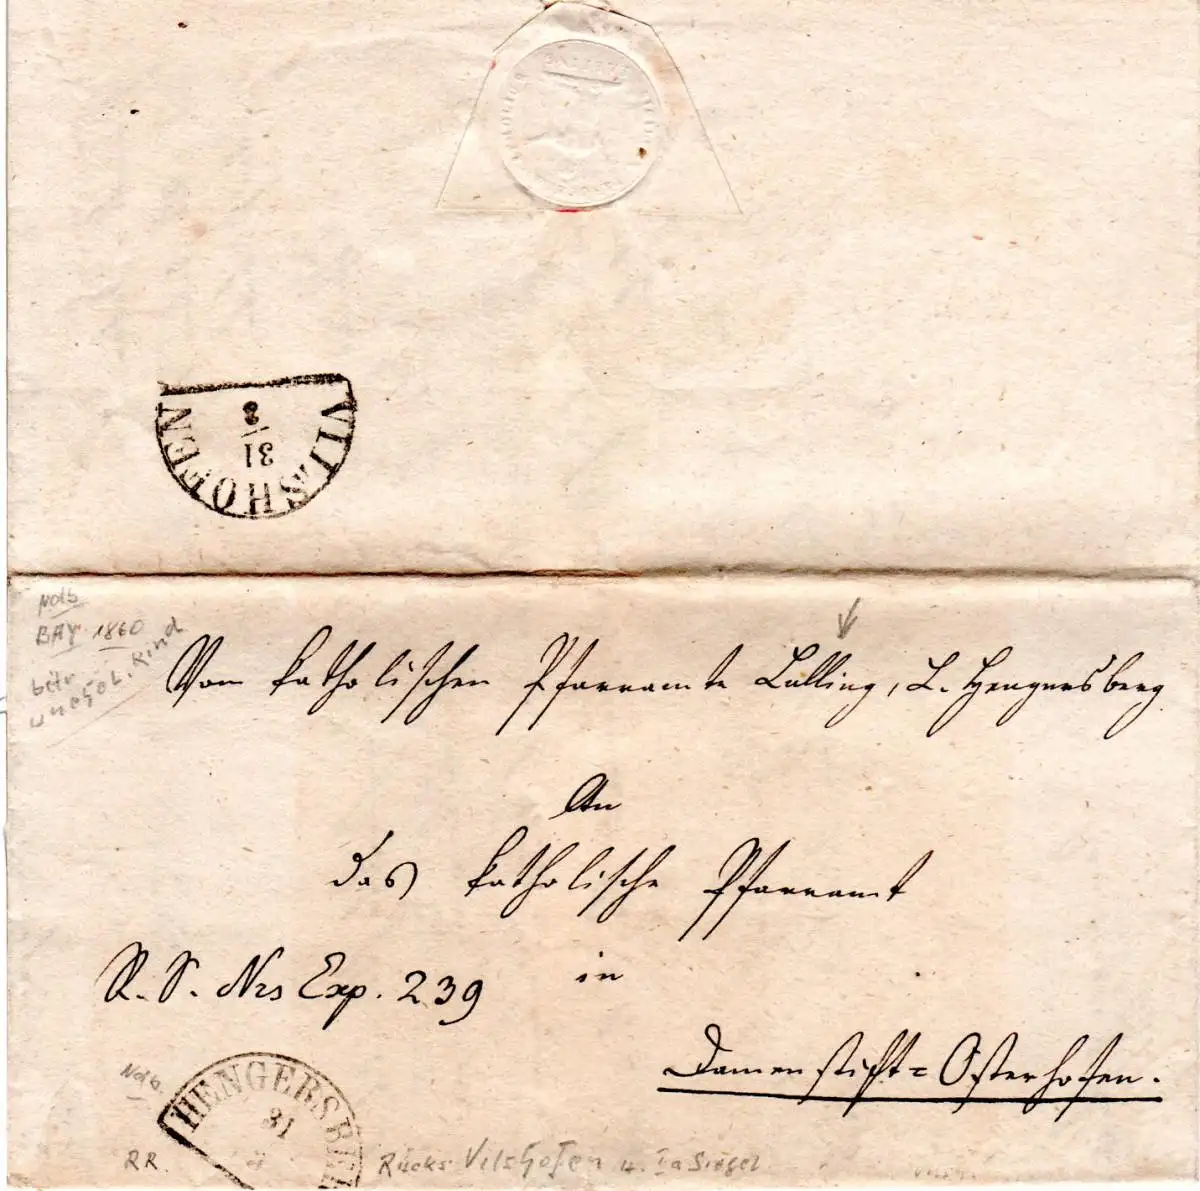 VILSHOFEN
31
8
Ndb
BAY 1860
betr.
unehel. Kind
Vom katholischen Pfarramte Lalling, L. Hengersberg
An
das katholische Pfarramt
in
R. S. Nrs Exp. 239
Damenstift=Osterhofen.
Ndb.
HENGERSBE
31
RR.
Rücks Vilshofen u. Ia Siegel